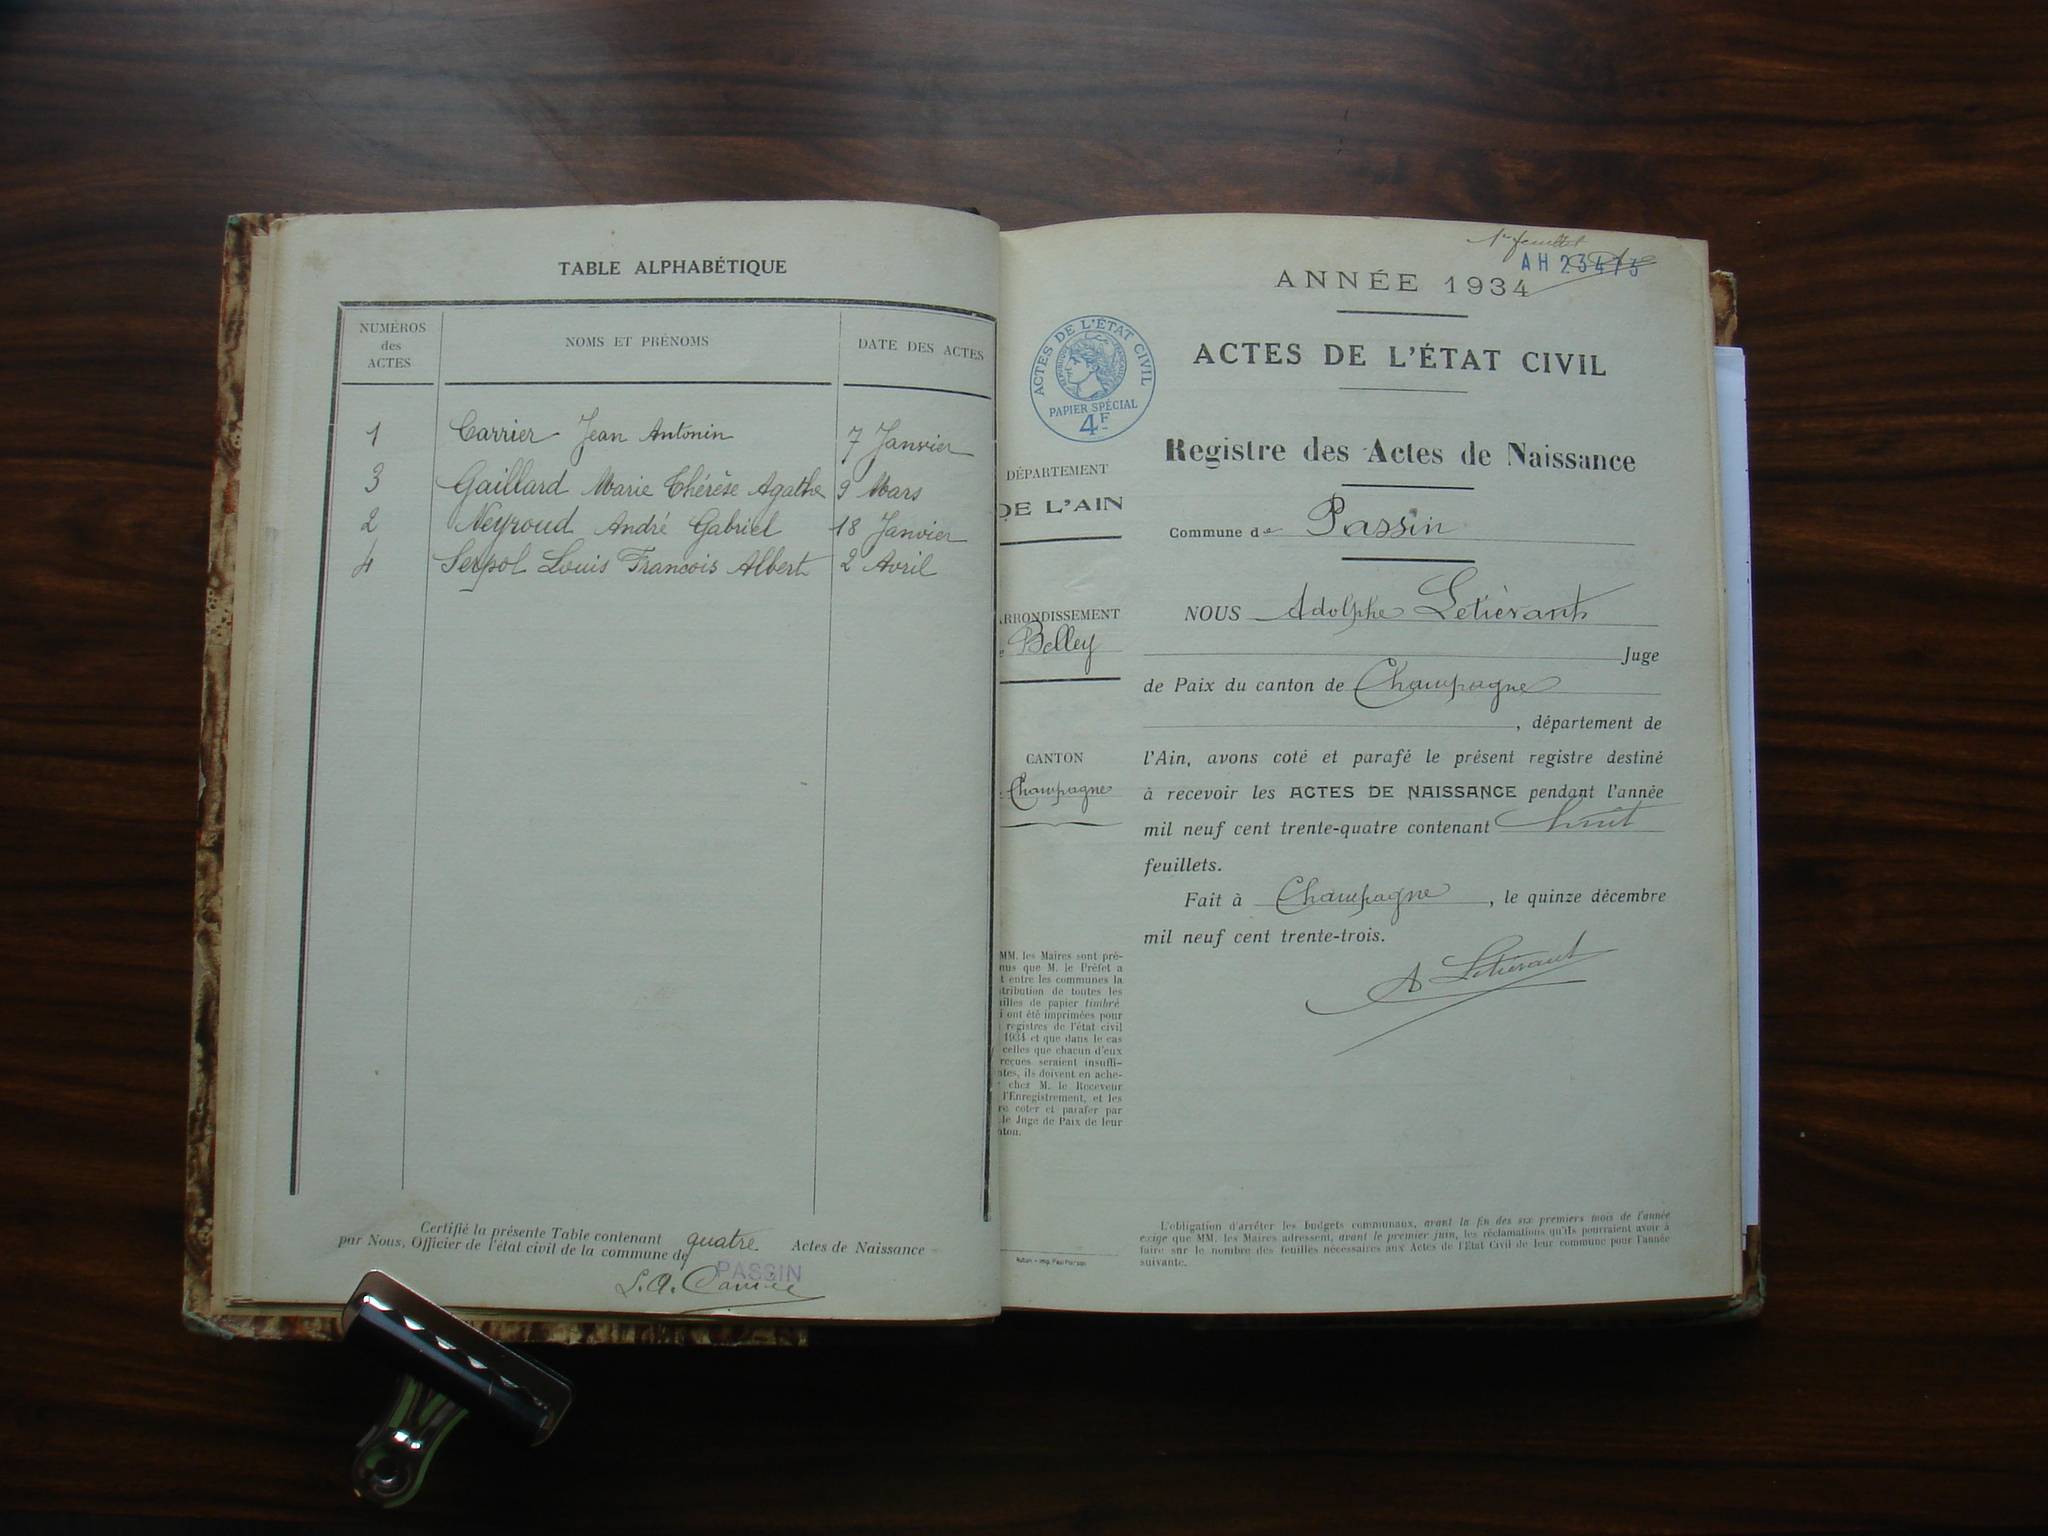 TABLE ALPHABÉTIQUE
NUMÉROS
des
ACTES
NOMS ET PRÉNOMS
DATE DES ACTES
1 Carrier Jean Antonin 7 Janvier
3 Gaillard Marie Thérèse Agathe 9 Mars
2 Neyroud André Gabriel 18 Janvier
4 Serpol Louis François Albert 2 Avril
Certifié la présente Table contenant quatre Actes de Naissance
par Nous, Officier de l'état civil de la commune de
PASSIN
1er feuillet
AH 23475
ANNÉE 1934
ACTES DE L'ÉTAT CIVIL
RÉPUBLIQUE FRANÇAISE
PAPIER SPÉCIAL
4F
ACTES DE L'ÉTAT CIVIL
Registre des Actes de Naissance
DÉPARTEMENT
DE L'AIN
Commune de Passin
ARRONDISSEMENT
Belley
NOUS Adolphe Letiévant
Juge
de Paix du canton de Champagne
, département de
CANTON
Champagne
l'Ain, avons coté et parafé le présent registre destiné
à recevoir les ACTES DE NAISSANCE pendant l'année
mil neuf cent trente-quatre contenant huit
feuillets.
Fait à Champagne, le quinze décembre
mil neuf cent trente-trois.
A Letiévant
MM. les Maires sont pré-
nus que M. le Préfet a
t entre les communes la
tribution de toutes les
illes de papier timbré
i ont été imprimées pour
registres de l'état civil
1934 et que dans le cas
celles que chacun d'eux
reçues seraient insuffi-
ntes, ils doivent en ache-
chez M. le Receveur
l'Enregistrement, et les
re coter et parafer par
le Juge de Paix de leur
nton.
L'obligation d'arrêter les budgets communaux, avant la fin des six premiers mois de l'année
exige que MM. les Maires adressent, avant le premier juin, les réclamations qu'ils pourraient avoir à
faire sur le nombre des feuilles nécessaires aux Actes de l'Etat Civil de leur commune pour l'année
suivante.